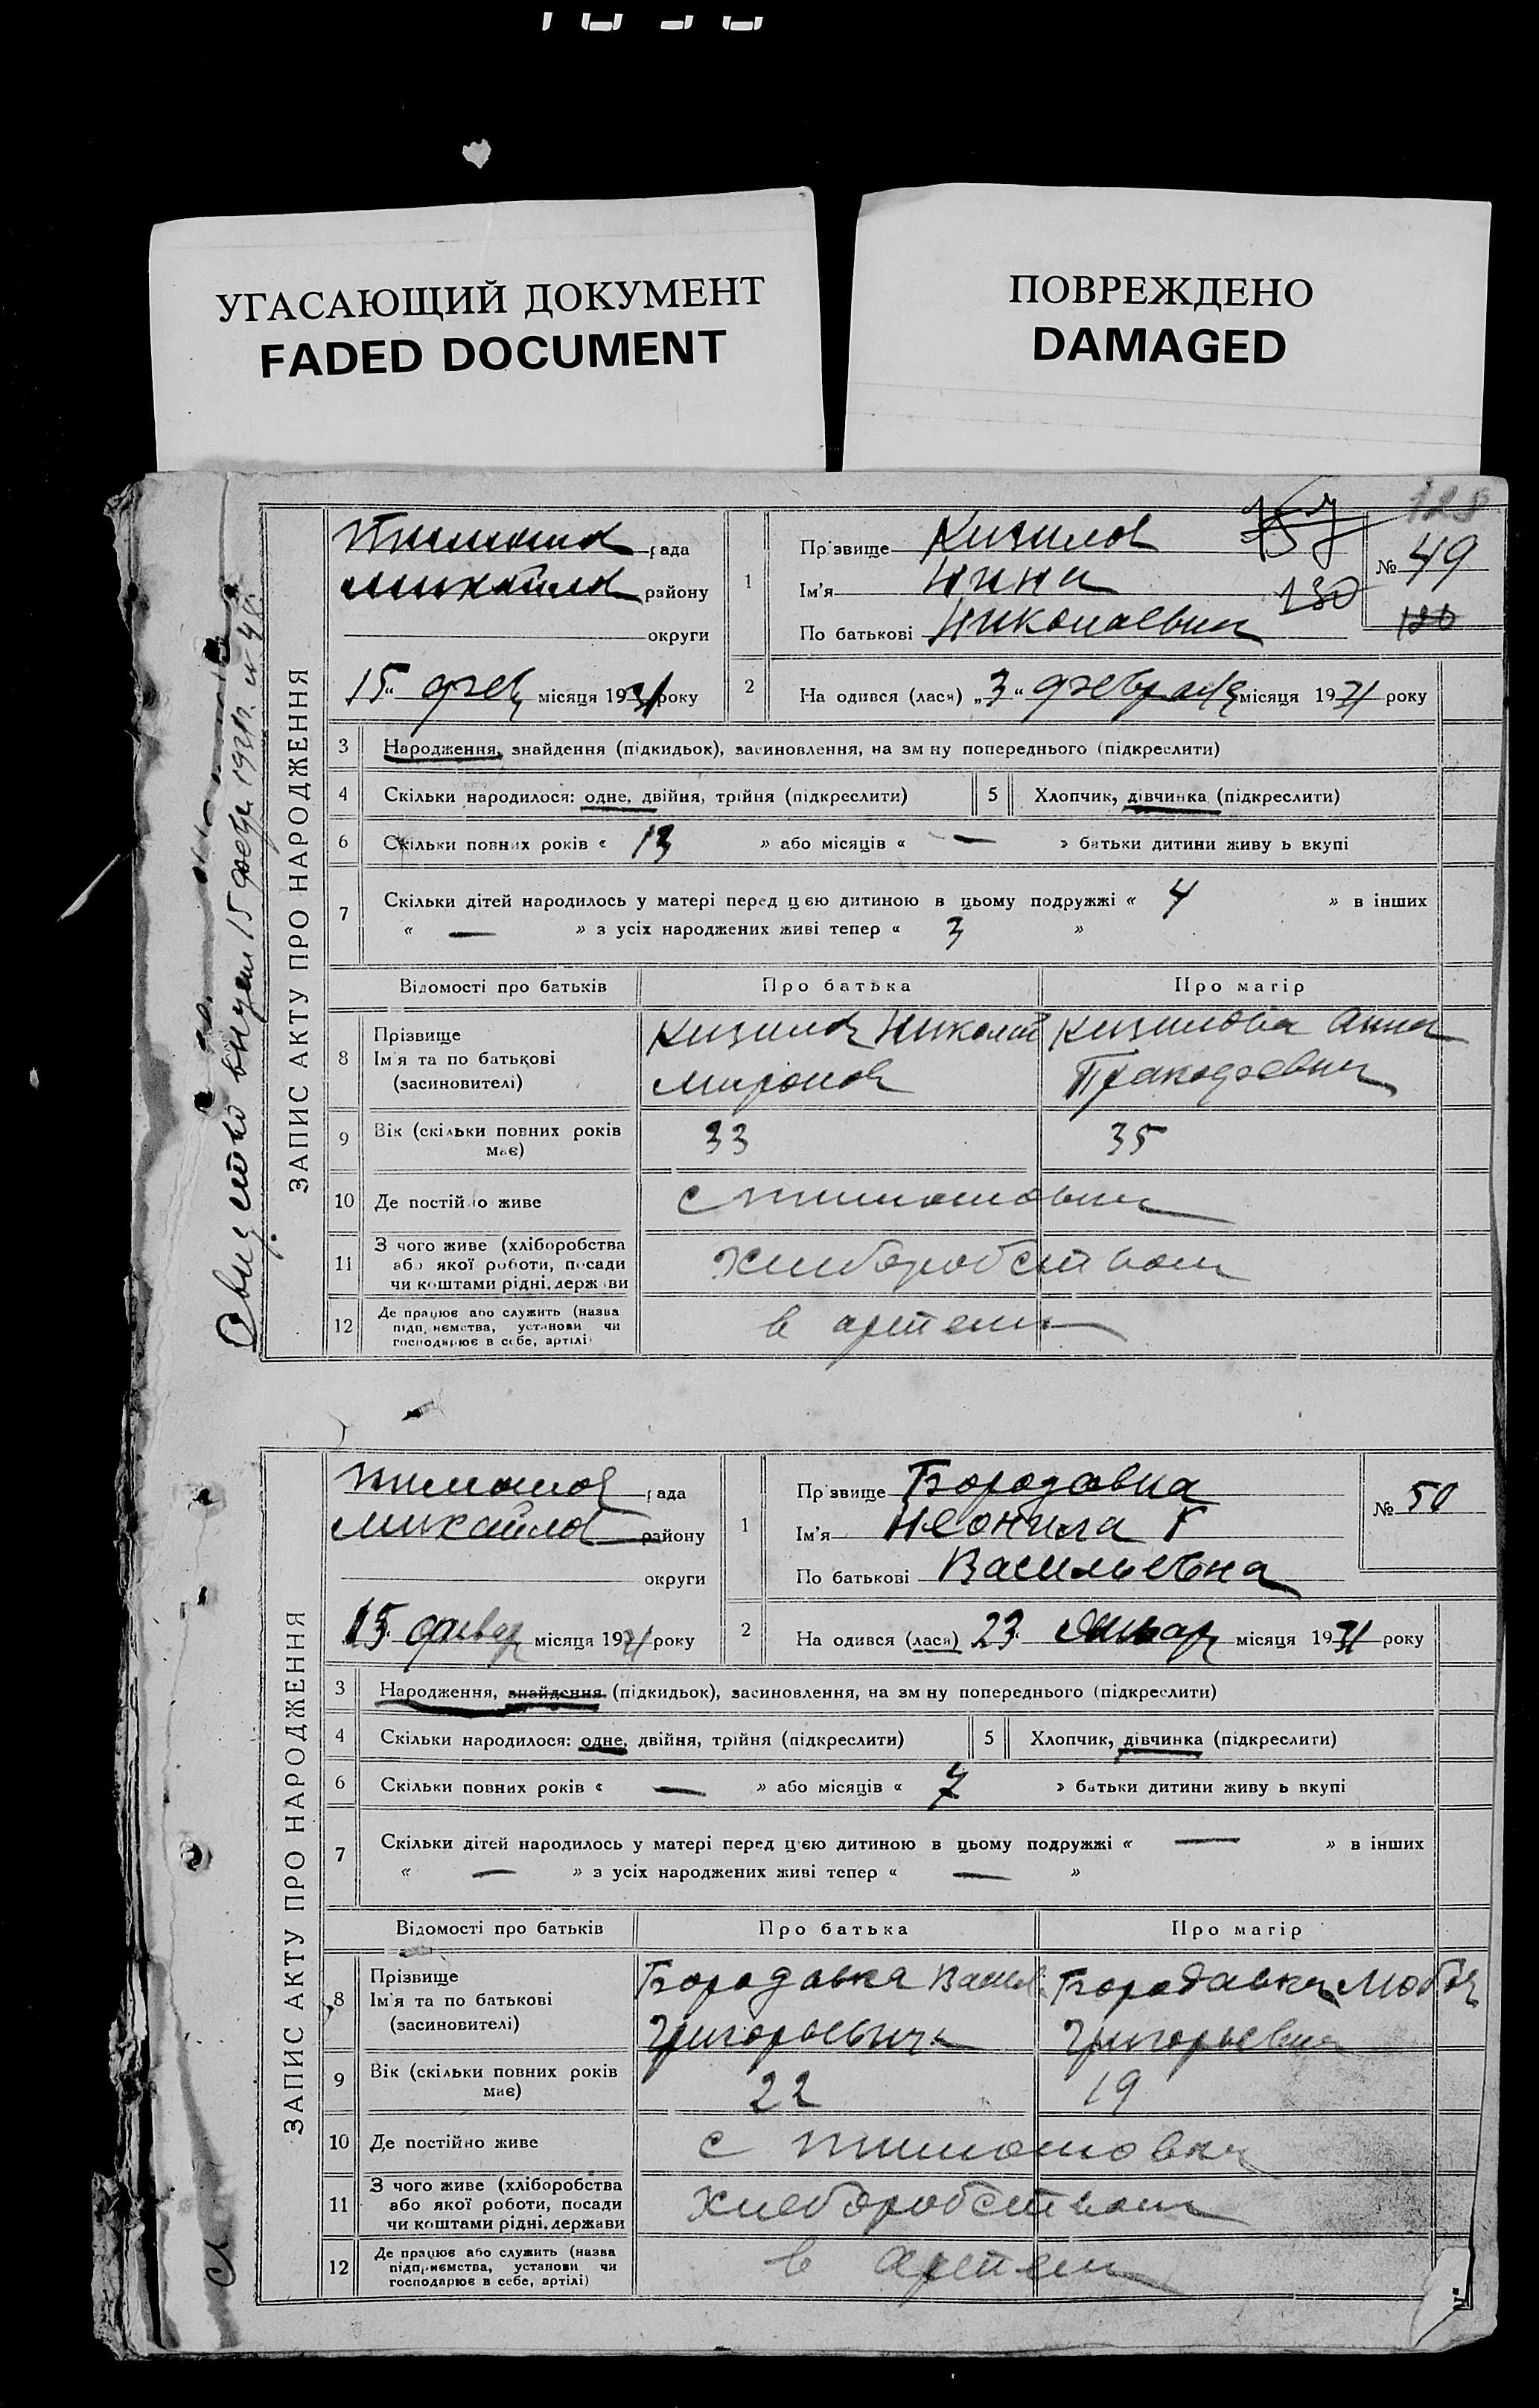 УГАСАЮЩИЙ ДОКУМЕНТ
FADED DOCUMENT
ПОВРЕЖДЕНО
DAMAGED
128
ЗАПИС АКТУ ПРО НАРОДЖЕННЯ
Тимошов рада
Михайлов району
округи
1 Прізвище Кизилов
Ім'я Нина
По батькові Николаевна
№ 49
130
15 фев місяця 1931 року
2 На одився (лася) „3“ февраля місяця 1931 року
3 Народження, знайдення (підкидьок), засиновлення, на зм ну попереднього (підкреслити)
4 Скільки народилося: одне, двійня, трійня (підкреслити) 5 Хлопчик, дівчинка (підкреслити)
6 Скільки повних років « 13 » або місяців « — » батьки дитини живу ь вкупі
7 Скільки дітей народилось у матері перед цєю дитиною в цьому подружжі « 4 » в інших
« — » з усіх народжених живі тепер « 3 »
Відомості про батьків Про батька Про матір
8 Прізвище
Ім'я та по батькові
(засиновителі)
Кизилов Николай
Миронов
Кизилова Анна
Пракофевна
9 Вік (скільки повних років
має) 33 35
10 Де постійно живе с Тимошовка
11 З чого живе (хліборобства
або якої роботи, посади
чи коштами рідні, держави
Хлиборобством
12 Де працює або служить (назва
підприємства, установи чи
господарює в себе, артілі)
в артели
ЗАПИС АКТУ ПРО НАРОДЖЕННЯ
Тимошов рада
Михайлов району
округи
1 Прізвище Бородавка
Ім'я Неонила
По батькові Васильевна
№ 50
15 місяця 1931 року
2 На одився (лася) 23 Январ місяця 1931 року
3 Народження, знайдення (підкидьок), засиновлення, на зм ну попереднього (підкреслити)
4 Скільки народилося: одне, двійня, трійня (підкреслити) 5 Хлопчик, дівчинка (підкреслити)
6 Скільки повних років « — » або місяців « 7 » батьки дитини живу ь вкупі
7 Скільки дітей народилось у матері перед цією дитиною в цьому подружжі « — » в інших
« — » з усіх народжених живі тепер « — »
Відомості про батьків Про батька Про матір
8 Прізвище
Ім'я та по батькові
(засиновителі)
Бородавка Васил
Григорьевич
Бородавка Любов
Григорьевна
9 Вік (скільки повних років
має) 22 19
10 Де постійно живе с Тимошовка
11 З чого живе (хліборобства
або якої роботи, посади
чи коштами рідні, держави
Хлеборобством
12 Де працює або служить (назва
підприємства, установи чи
господарює в себе, артілі)
в артели